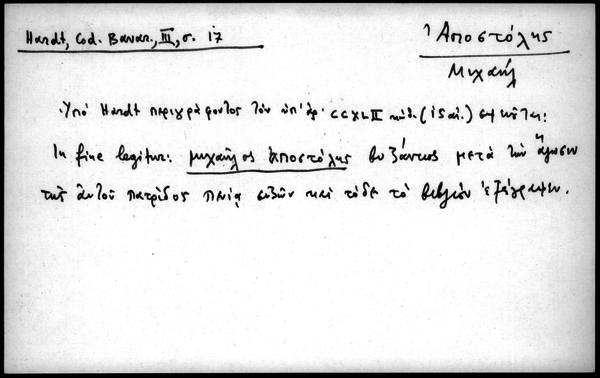 Hardt, Cod. Bavar., III, σ. 17
Ἀποστόλης
Μιχαήλ
Ὑπό Hardt περιγράφοντος τὸν ὑπ' ἀρ. CCXLII κώδ. (ιϛ αἰ.)
In fine legitur: μιχαῆλος ἀποστόλης βυζάντιος μετὰ τὴν ἅλωσιν
τῆς αὐτοῦ πατρίδος πενίᾳ συζῶν καὶ τόδε τὸ βιβλίον ἐξέγραψεν.